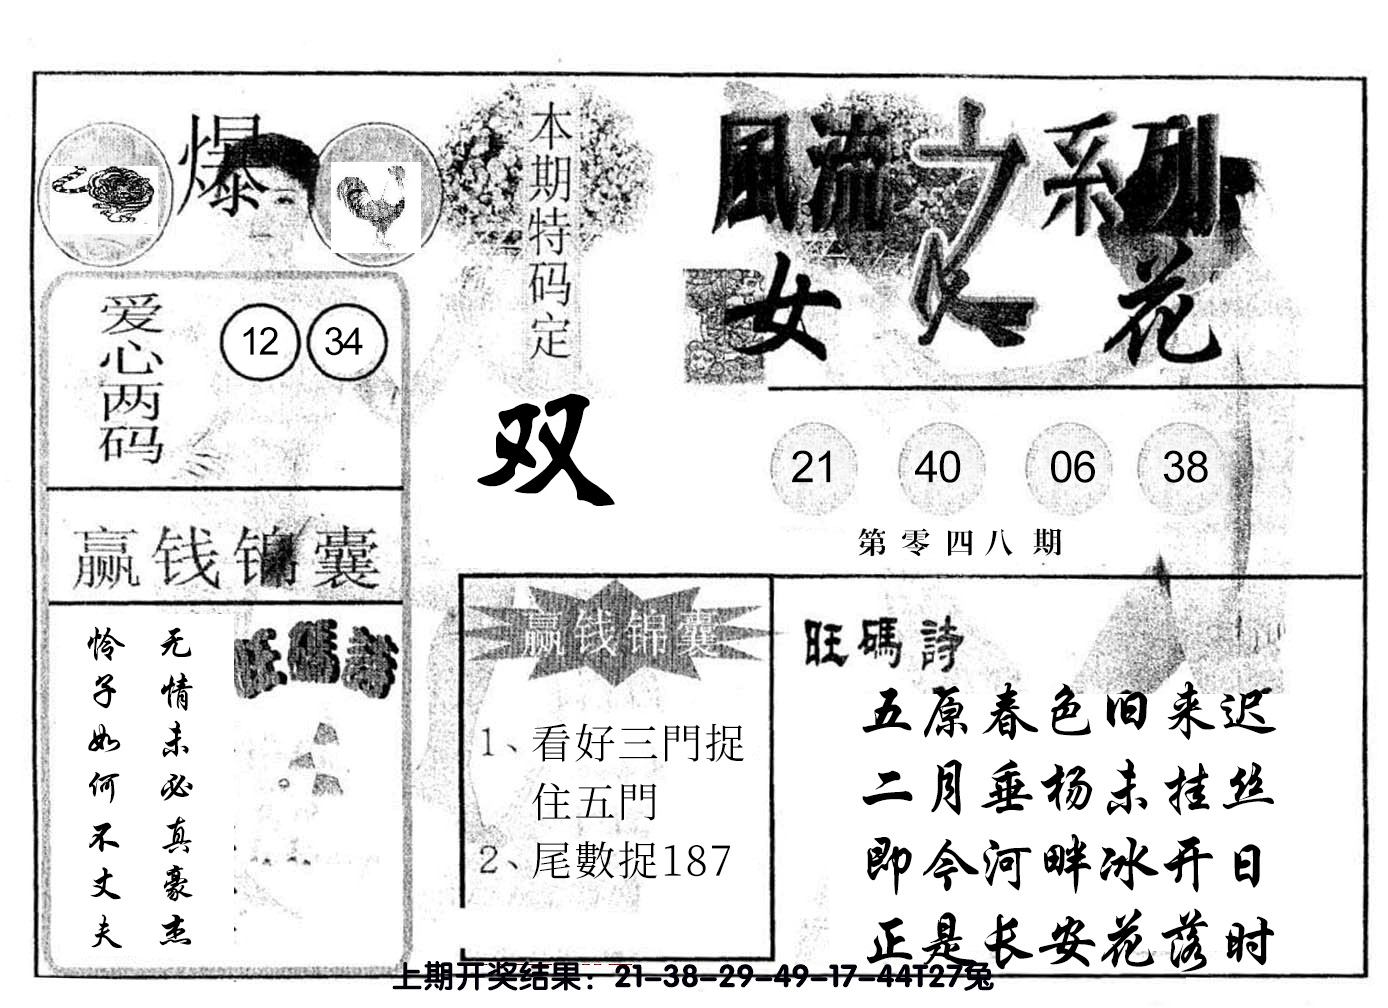 爆
本期特码定
双
風流之系列
女人花
爱心两码
12 34
21 40 06 38
第零四八期
赢钱锦囊
无情未必真豪杰
怜子如何不丈夫
旺碼詩
赢钱锦囊
1、看好三門捉
住五門
2、尾數捉187
旺碼詩
五原春色旧来迟
二月垂杨未挂丝
即今河畔冰开日
正是长安花落时
上期开奖结果：21-38-29-49-17-44T27兔